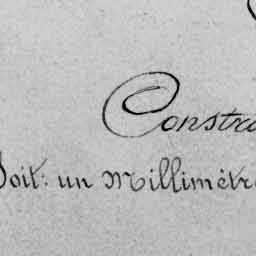 Constru
Soit: un Millimètr